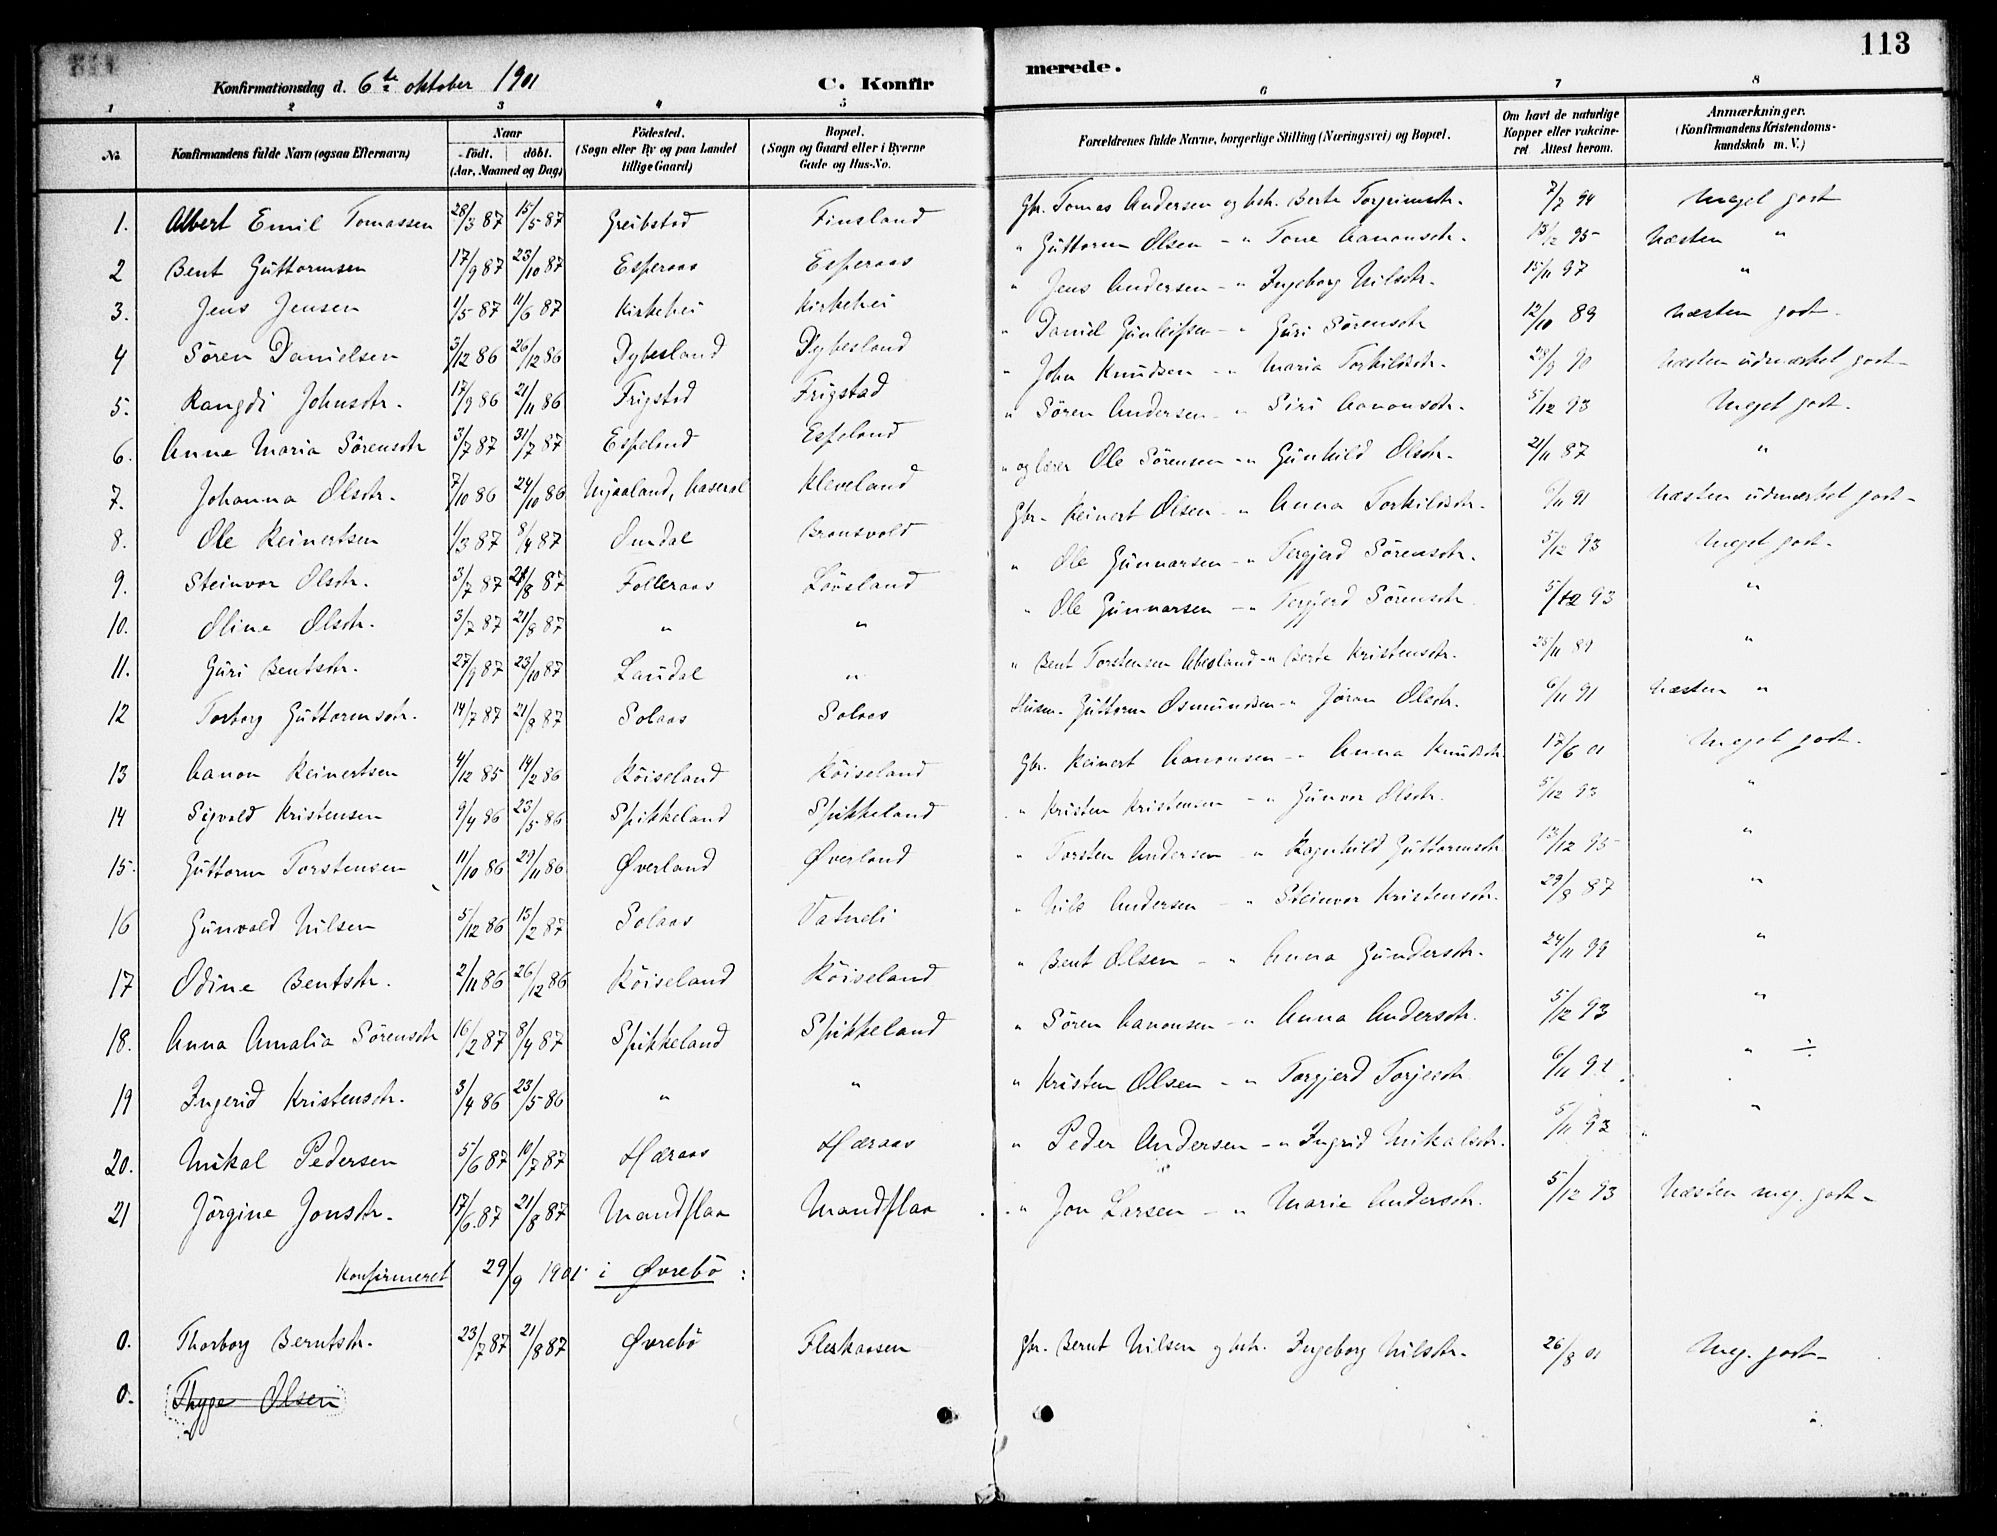 113
Konfirmationsdag d. 6te oktober 1901 C. Konfirmerede.
1 2 3 4 5 6 7 8
No. Konfirmandens fulde Navn (ogsaa Efternavn) Naar født. døbt. (Aar, Maaned og Dag) Fødested. (Sogn eller By og paa Landet tillige Gaard) Bopæl. (Sogn og Gaard eller i Byerne Gade og Hus-No. Forældrenes fulde Navne, borgerlige Stilling (Næringsvei) og Bopæl. Om havt de naturlige Kopper eller vakcineret Attest herom. Anmærkninger. (Konfirmandens Kristendomskundskab m. V.)
1. Albert Emil Tomassen 28/3 87 15/5 87 Greibstad Finsland Gbr. Tomas Andersen og hst. Berte Torgrimsdtr. 7/7 94 Meget godt
2 Bent Guttormsen 17/9 87 23/10 87 Esperaas Esperaas " Guttorm Olsen - " Tone Aanonsdtr. 13/12 95 Næsten "
3. Jens Jensen 1/5 87 11/6 87 Kirkehei Kirkehei " Jens Andersen - " Ingeborg Nilsdtr. 15/11 97 "
4 Sören Danielsen 3/12 86 26/12 86 Dybesland Dybesland " Daniel Gunleifsen - " Guri Sörensdtr 12/10 89 Næsten godt.
5. Rangdi Johnsdtr. 17/9 86 21/11 86 Frigstad Frigstad " John Knudsen - " Maria Torkildsdtr. 28/9 90 Næsten udmærket godt
6. Anne Maria Sörensdtr 3/7 87 31/7 87 Espeland Espeland " Sören Andersen - " Siri Aanonsdtr. 5/12 93 Meget godt.
7. Johanna Olsdtr. 7/10 86 24/10 86 Mjaaland, Aaseral Kleveland " og lærer Ole Sörensen - " Gunhild Olsdtr. 21/11 87 "
8. Ole Reinertsen 1/3 87 8/4 87 Smdal Bronsvold Gbr. Reinert Olsen - " Anna Torkildsdtr. 6/11 91 Næsten udmærket godt
9. Steinvor Olsdtr. 3/7 87 21/8 87 Folleraas Lövsland " Ole Gunnarsen - " Tergjerd Sörensdtr. 5/12 93 Meget godt.
10. Oline Olsdtr. 3/7 87 21/8 87 " " " Ole Gunnarsen - " Tergjerd Sörensdtr 5/12 93 "
11. Guri Bentsdtr. 27/9 87 23/10 87 Laudal " " Bent Torstensen Abesland - " Berte Kristensdtr. 25/11 89 "
12 Torborg Guttormsdtr. 14/7 87 21/8 87 Solaas Solaas Husm. Guttorm Osmundsen - " Jöran Olsdtr. 6/11 91 Næsten "
13 Aanon Reinertsen 4/12 85 14/2 86 Röiseland Röiseland Gbr. Reinert Aanonsen - " Anna Knudsdtr. 17/6 01 Meget godt.
14 Sigvald Kristensen 9/4 86 23/5 86 Spikkeland Spikkeland " Kristen Kristensen - " Gunvor Olsdtr. 5/12 93 "
15. Guttorm Torstensen 11/10 86 29/11 86 Øverland Øverland " Torsten Andersen - " Ragnhild Guttormsdtr. 13/12 95 "
16 Gunvald Nilsen 5/12 86 15/2 87 Solaas Vatneli " Nils Andersen - " Steinvor Kristensdtr. 29/8 87 "
17 Odine Bentsdtr. 2/11 86 26/12 86 Röiseland Röiseland " Bent Olsen - " Anna Gundersdtr. 24/11 99 "
18. Anna Amalia Sörensdtr 16/2 87 8/4 87 Spikkeland Spikkeland " Sören Aanonsen - " Anna Andersdtr. 5/12 93 "
19 Ingerid Kristensdtr. 3/4 86 23/5 86 " " " Kristen Olsen - " Torgjerd Torjesdtr 6/11 91 " ÷
20. Mikal Pedersen 5/6 87 10/7 87 Heraas Heraas " Peder Andersen - " Ingrid Mikalsdtr. 5/11 93 "
21 Jörgine Jonsdtr. 17/6 87 21/8 87 Mandflaa Mandflaa " Jon Larsen - " Marie Andersdtr. 5/12 93 Næsten meg. godt
Konfirmeret 29/9 1901 i Øvrebö :
0. Thorborg Berntsdtr. 23/7 87 21/8 87 Øvrebö Fleskaasen Gbr. Bernt Nilsen og hst. Ingeborg Nilsdtr. 26/8 01 Meg. godt
0. Thyge Olsen